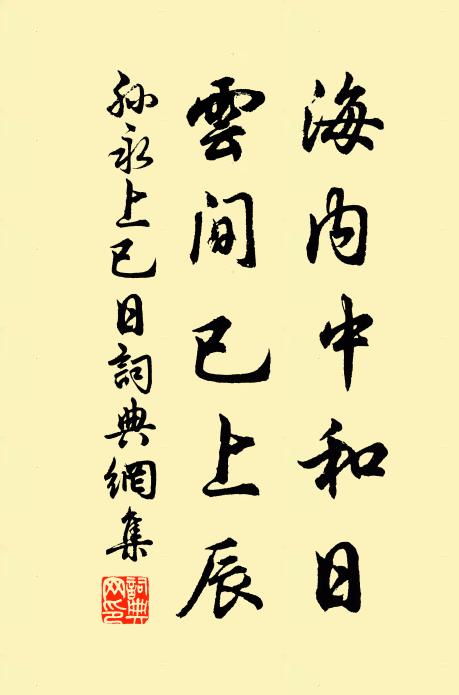 海内中和日
雲間已上辰
孫永上巳日詞典網集
詞典網印